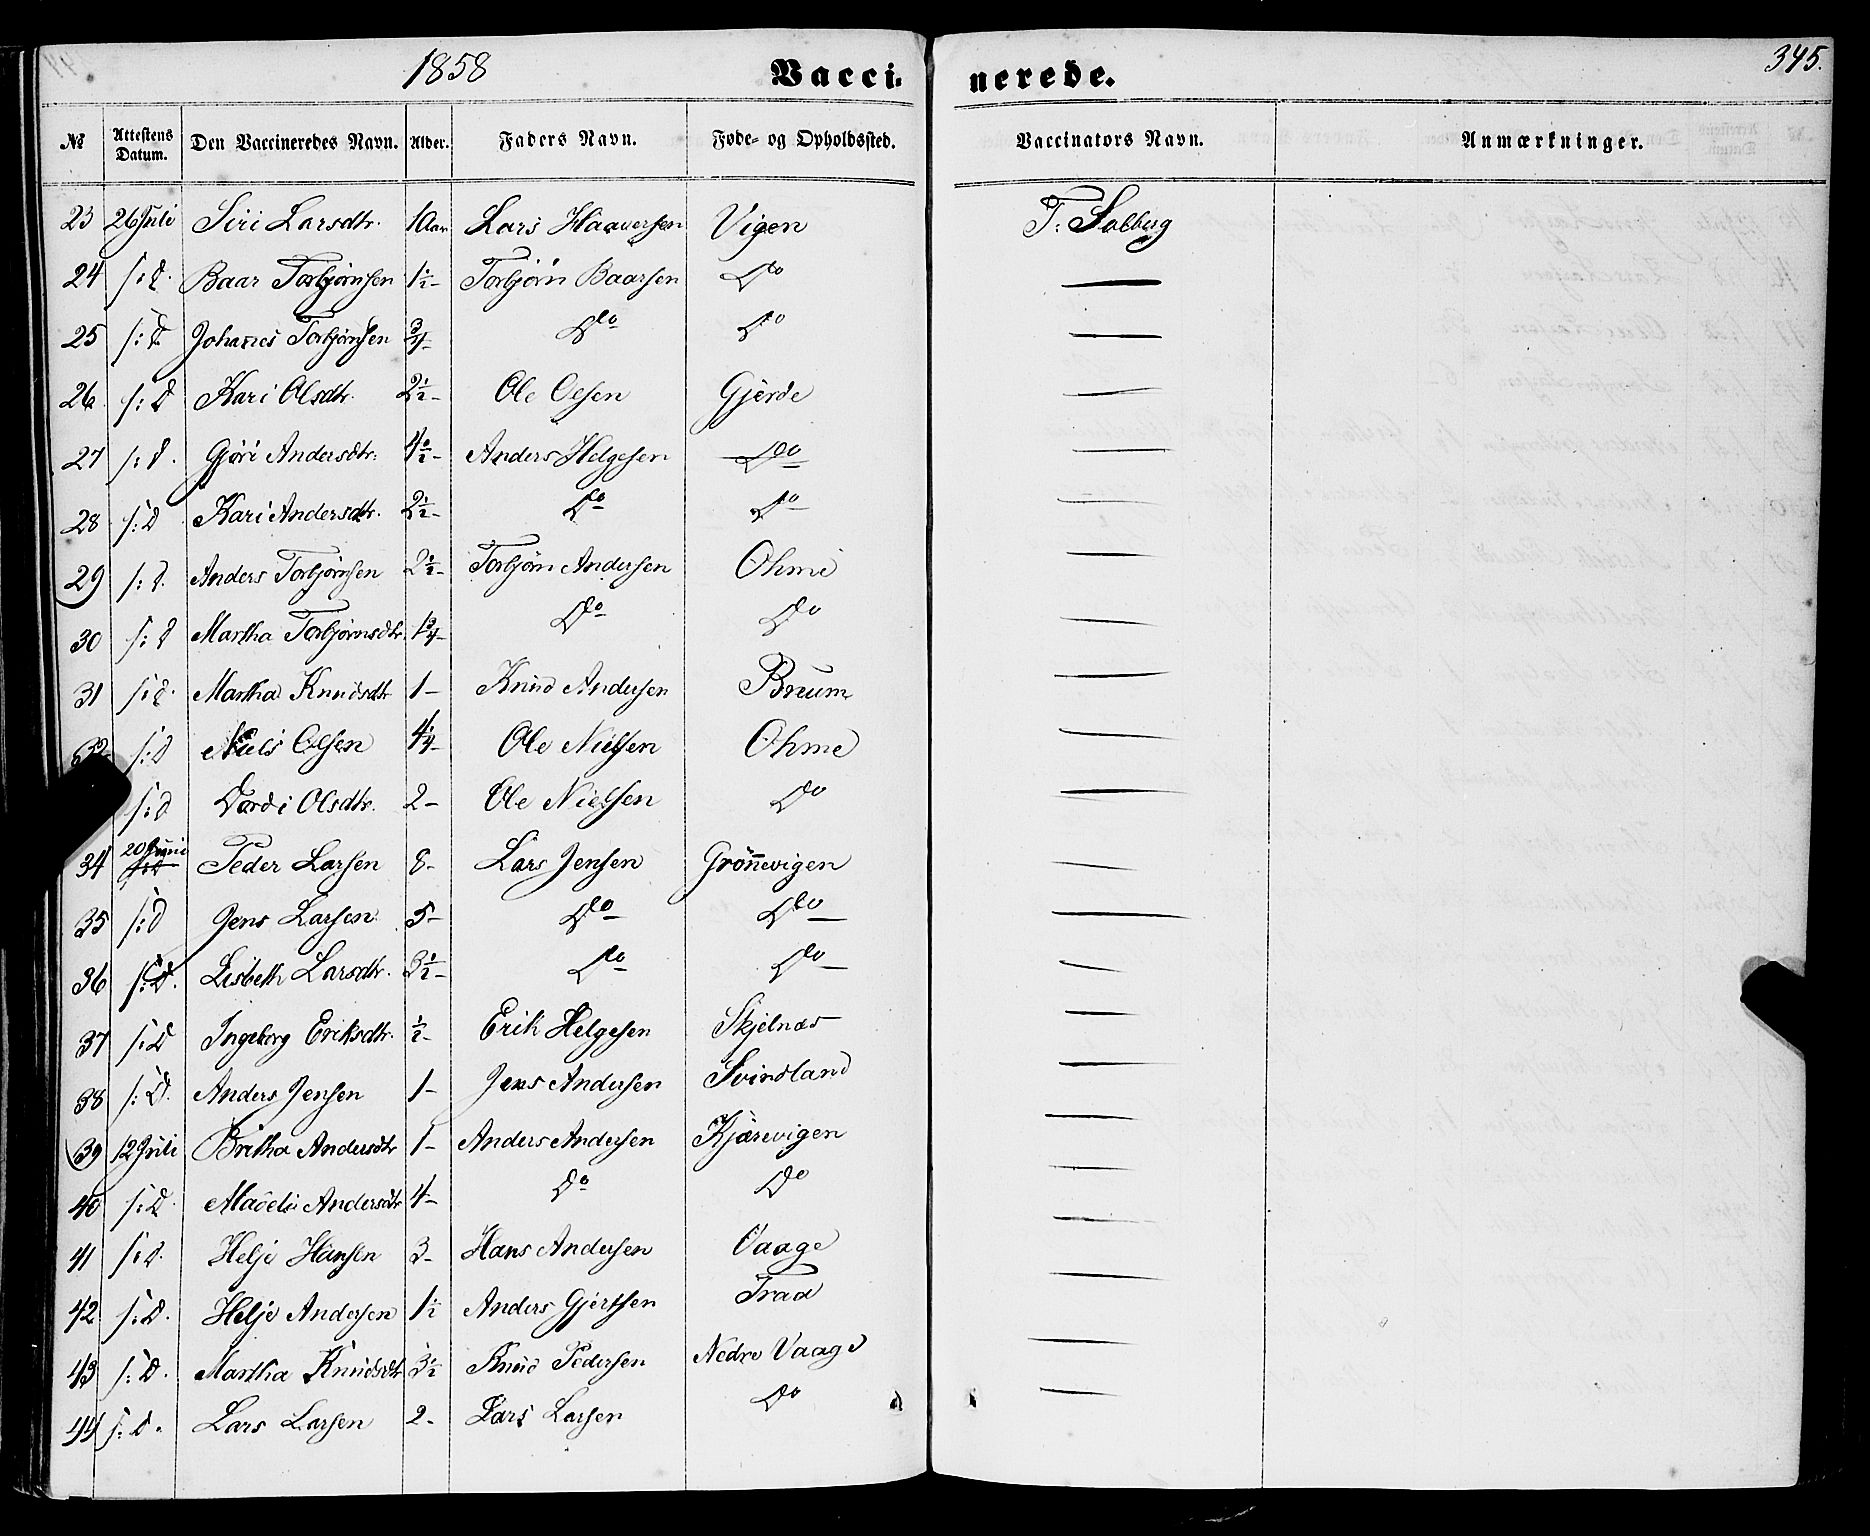 1858 Vacci- nerede. 345.
№ Attestens Datum. Den Vaccineredes Navn. Alder. Faders Navn. Føde- og Opholdssted. Vaccinators Navn. Anmærkninger.
23 26 Juli Siri Larsdtr. 10 aar Lars Haaversen Vigen T: Solberg
24 s: D. Baar Torbjörnsen 1½- Torbjörn Baarsen Do —
25 s: D Johanes Torbjörnsen ¾- Do Do —
26 s: D Kari Olsdtr. 2½- Ole Olsen Gjerde —
27 s: D. Gjöri Andersdtr: 4½- Anders Helgesen Do —
28 s: D Kari Andersdtr. 2½- Do Do —
29 s: D. Anders Torbjörnsen 2½- Torbjörn Andersen Ohme —
30 s: D Martha Torbjörnsdtr 1¾- Do Do —
31 s: D. Martha Knudsdtr 1- Knud Andersen Breum —
32 s: D Niels Olsen 4¼- Ole Nielsen Ohme —
s: D Vordi Olsdtr. 2- Ole Nielsen Do —
34 20 Juni Peder Larsen 8- Lars Jensen Grönnevigen —
35 s: D Jens Larsen 5- Do Do —
36 s: D. Lisbeth Larsdtr. 3½- Do Do —
37 s: D Ingeborg Eriksdtr. ½- Erik Helgesen Skjelnæs —
38 s: D. Anders Jensen 1- Jens Andersen Svindland —
39 12 Juli Britha Andersdtr 1- Anders Andersen Kjærevigen —
40 s: D. Madeli Andersdtr 4- Do Do —
41 s: D. Helje Hansen 3- Hans Andersen Vaage —
42 s: D. Helje Andersen 1½ Anders Gjertsen Traa —
43 s: D. Martha Knudsdtr 3½ Knud Pedersen Nedre Vaage —
44 s: D. Lars Larsen 2- Lars Larsen Do —